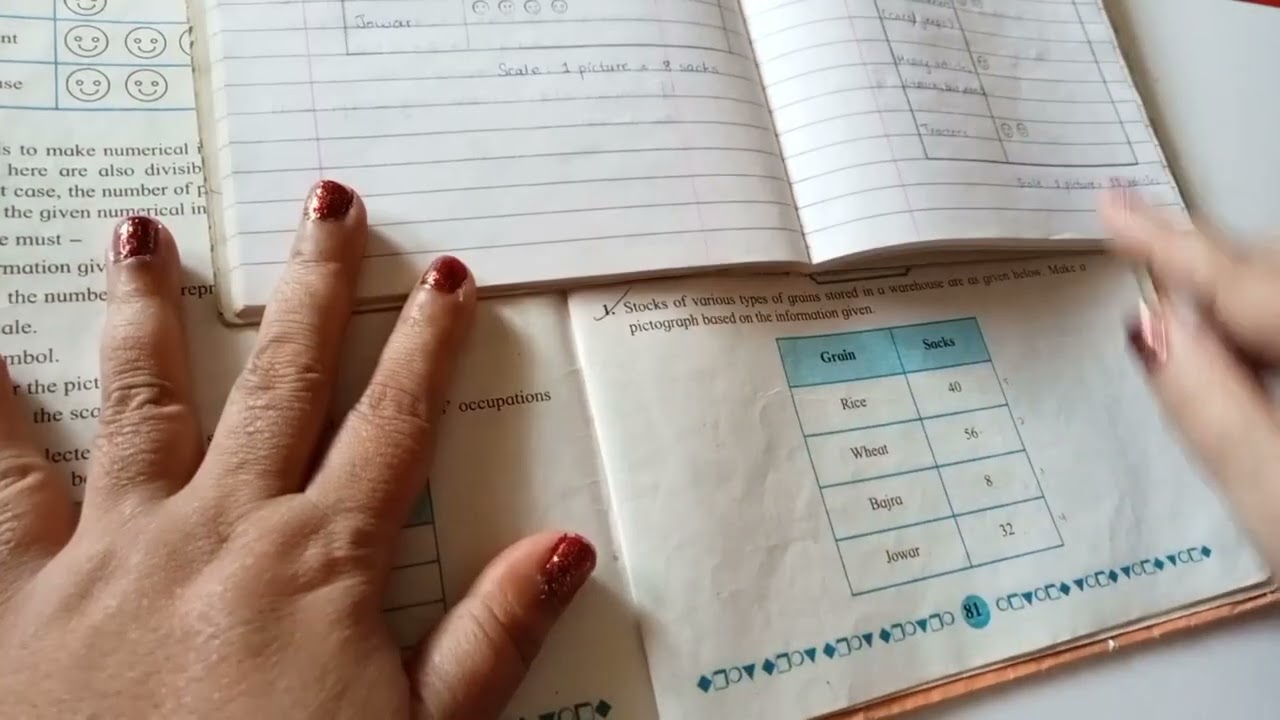 Jowar
Scale : 1 picture = 8 sacks
Tractors
nt
use
s to make numerical
here are also divisib
t case, the number of p
the given numerical in
e must –
rmation giv
the numbe repr
ale.
mbol.
r the pict
the sca
lecte
s' occupations
1. Stocks of various types of grains stored in a warehouse are as given below. Make a
pictograph based on the information given.
Grain Sacks
Rice 40
Wheat 56
Bajra 8
Jowar 32
81